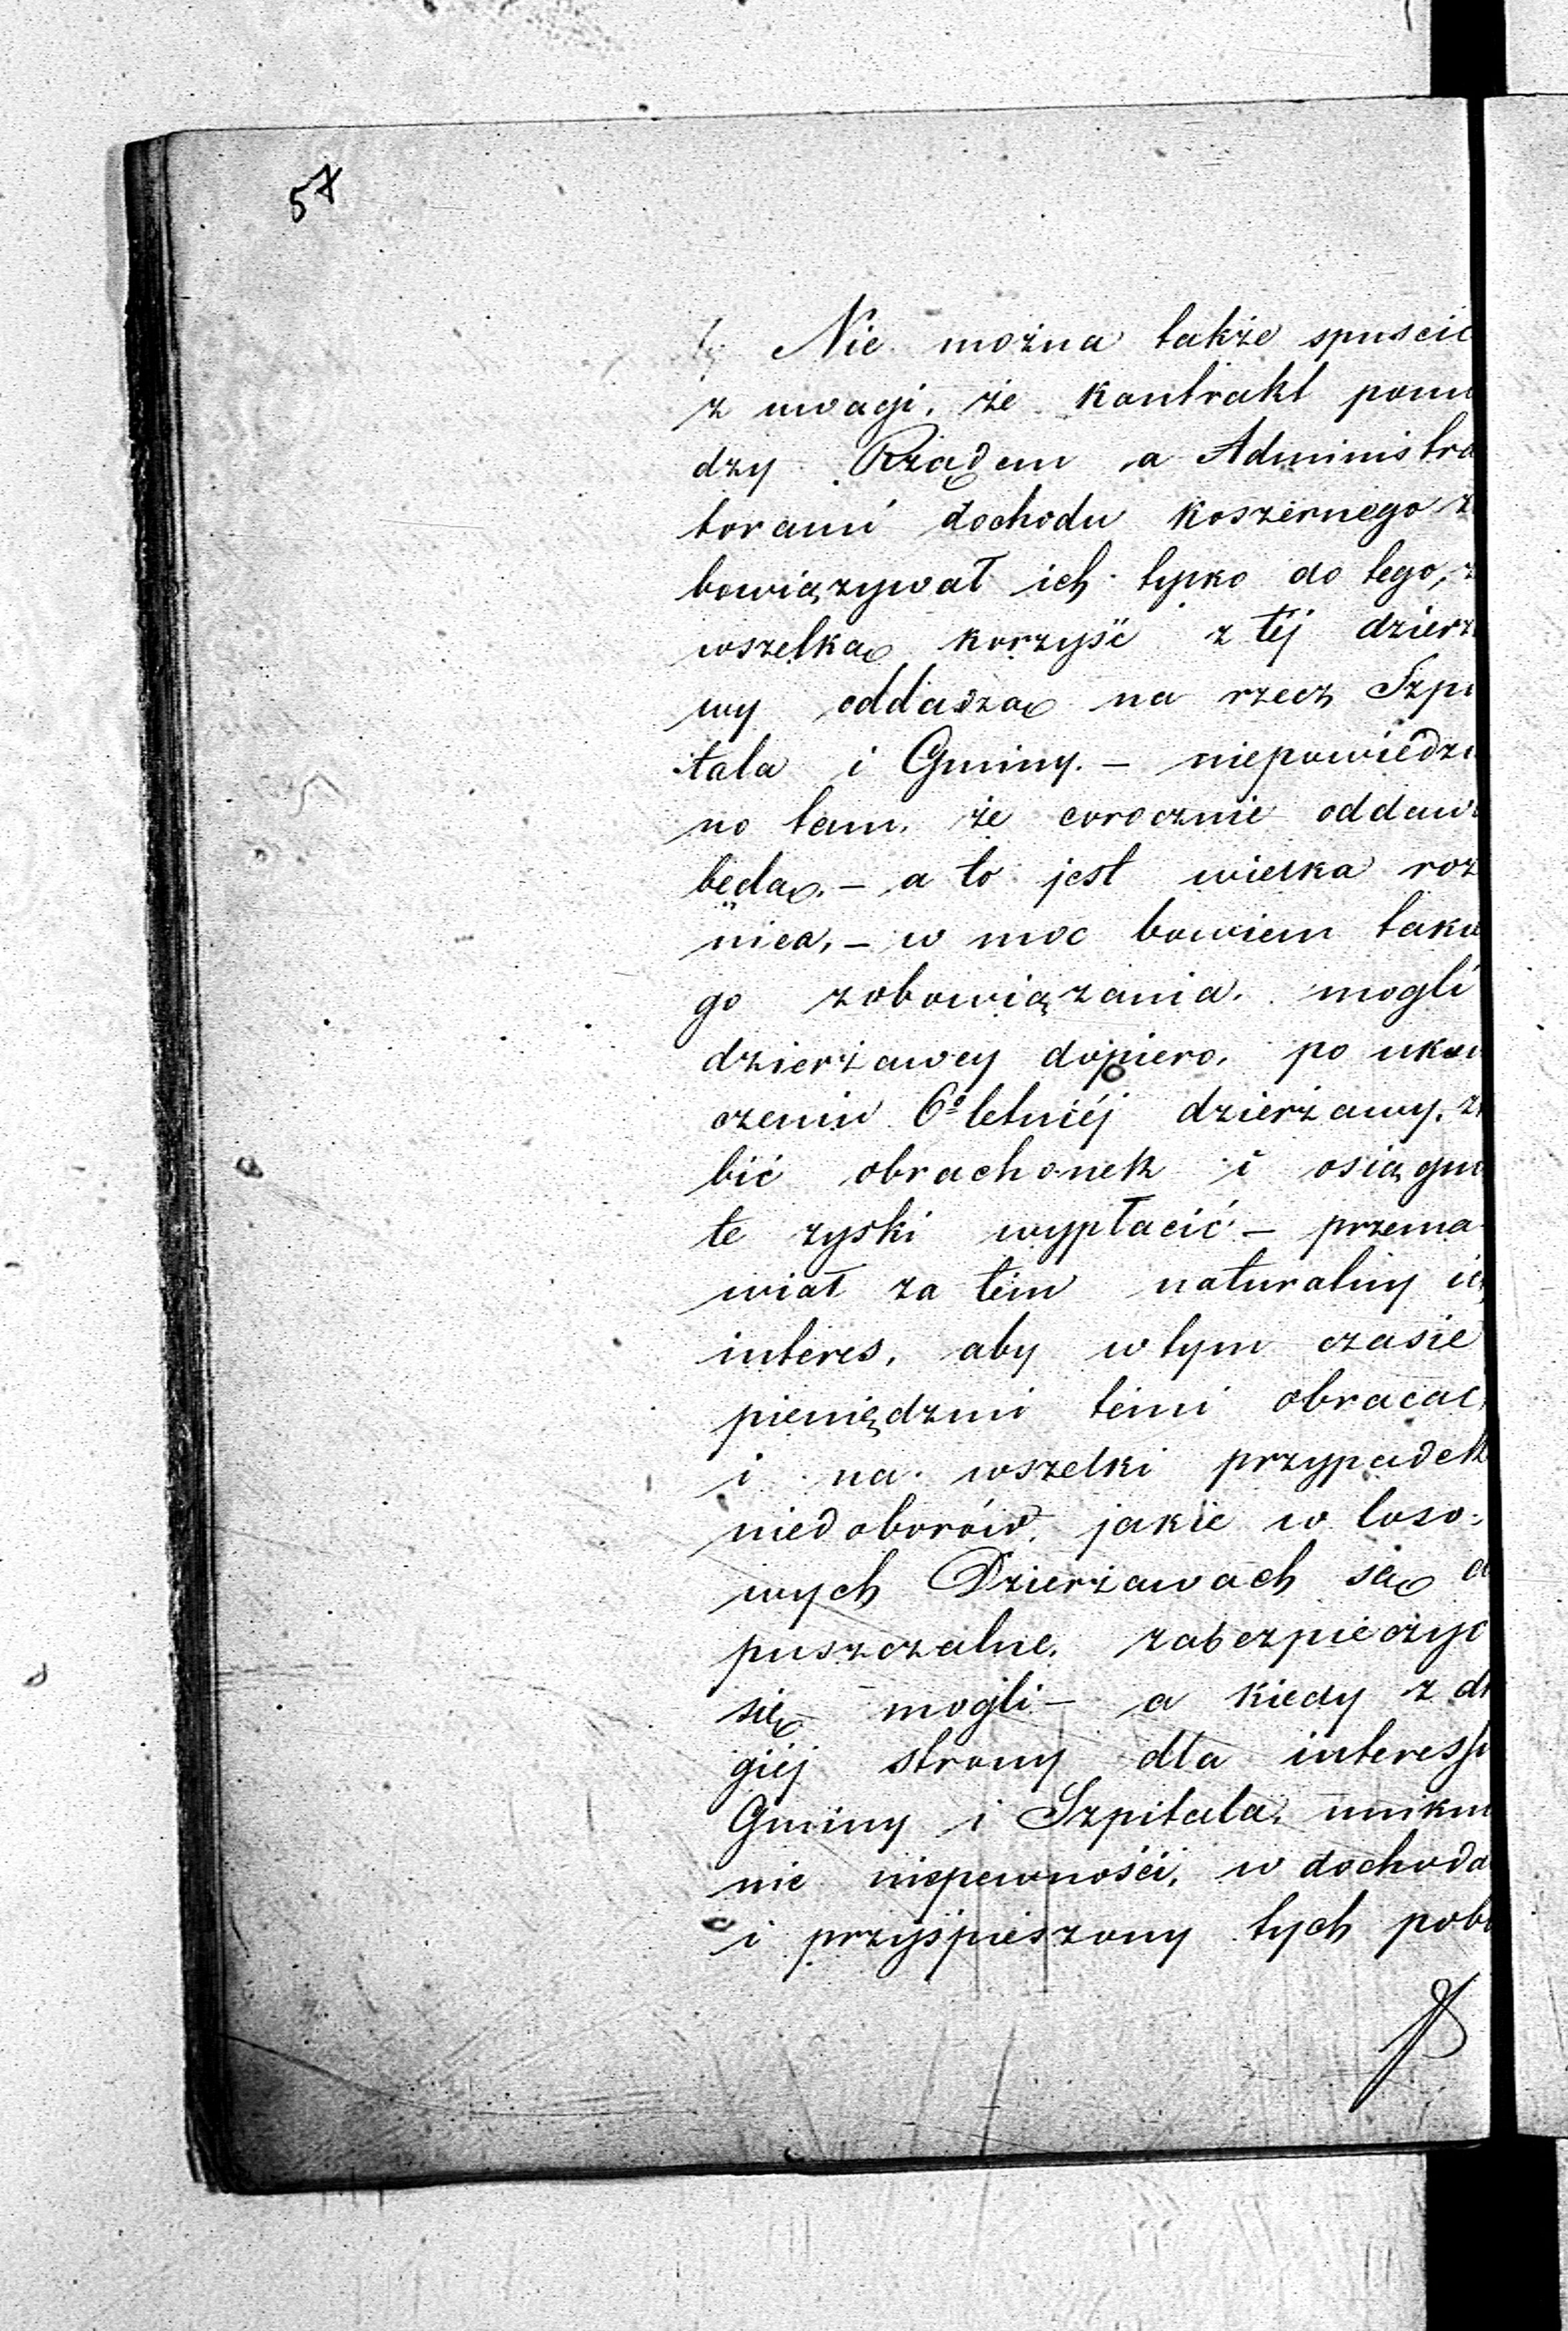 57
Nie można także spuścić
z uwagi, że kontrakt pomię
dzy Rządem a Administra
torami dochodu koszernego z
bowiązywał ich tylko do tego, ż
wszelką korzyść z téj dzierż
wy oddadzą na rzecz Szpi
tala i Gminy. — niepowiedzi
no tam, że corocznie oddaw
będą. — a to jest wielka roz
nica, — w moc bowiem takie
go zobowiązania, mogli
dzierżawcy dopiero, po ukoń
czeniu 6º letniéj dzierżawy, z
bić obrachonek i osiągnię
te zyski wypłacić — przema
wiał za tém naturalny ic
interes, aby w tym czasie
pieniędzmi temi obracac
i na wszelki przypadek
niedoborów, jakie w loso-
wych Dzierżawach są d
puszczalne, zabezpieczyć
się mogli — a kiedy z dr
giéj strony dla interessu
Gminy i Szpitala, unikni
nie niepewności, w dochoda
i przyśpieszony tych pobo